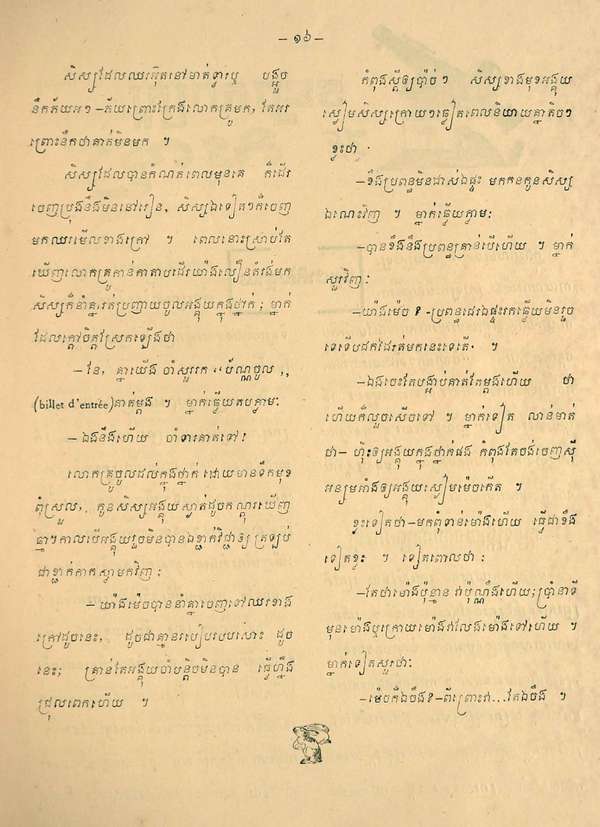 – ១៦–
សិស្សដែលឈរអ៊ុតនៅមាត់ទ្វារឬ បង្អួច
នឹកភ័យអរ១ –ភ័យព្រោះក្រែងលោកគ្រូមក, តែអរ
ព្រោះនឹកថាគាត់មិនមក ។
សិស្សដែលបានកំណត់ពេលមុនគេ ក៏ដើរ
ចេញប្រុងនឹងមិននៅរៀន, សិស្សឯទៀតៗក៏ចេញ
មកឈរមើលខាងក្រៅ ។ ពេលនោះស្រាប់តែ
ឃើញលោកគ្រូកាន់កាតាបដើរយ៉ាងលឿនតំរង់មក
សិស្សក៏នាំគ្នារត់ប្រញាយចូលអង្គុយក្នុងថ្នាក់ ; ម្នាក់
ដែលក្តៅចិត្តស្រែកឡើងថា
– នែ, គ្នាយើង ចាំសួររក ‹‹ ប័ណ្ណចូល ,,
(billet d'entrée) គាត់ម្តង ។ ម្នាក់ធ្វើយតបភ្លាម:
– ឯងនឹងហើយ ចាំទារគាត់ទៅ!
លោកគ្រូចូលដល់ក្នុងថ្នាក់ ដោយមានទឹកមុខ
ពុំស្រួល, កូនសិស្សអង្គុយស្ងាត់ដូចកណ្តុរឃើញ
ឆ្មា។ កាលបើអង្គុយរួចមិនបានឯខ្ជាក់វិជ្ជាឲ្យ ត្រឡប់
ជាខ្ជាក់កាកស្លាមកវិញ :
– យ៉ាងម៉េចបាននាំគ្នាចេញទៅឈរខាង
ក្រៅដូចនេះ, ដូចជាគ្មានរបៀបរបបសោះ ដូច
នេះ; គ្រាន់តែអង្គុយចាំបន្តិចមិនបាន ធ្វើហ្នឹង
ជ្រុលពេកហើយ ។
កំពុងស្តីឲ្យប៉ាច់ៗ សិស្សខាងមុខអង្គុយ
ស្ងៀមសិស្សក្រោយៗឆ្លៀតពេលនិយាយគ្នាតិចៗ
ខ្លះថា ·
–ខឹងប្រពន្ធមិនដាស់ឯផ្ទះ មកកកកូនសិស្ស
ឯណេះវិញ ។ ម្នាក់ធ្វើយភ្លាម:
–បានខឹងនឹងប្រពន្ធគ្រាន់បើហើយ ។ ម្នាក់
សួរវិញ:
–យ៉ាងម៉េច ? -ប្រពន្ធដេរឯផ្ទះរកធ្វើយមិនរួច
ទេទើបដកដែរត់មកនេះទេតើ· ។
–ឯងចេះតែបង្អាប់គាត់តែម្តងហើយ ថា
ហើយក៏លួចសើចទៅ ។ ម្នាក់ទៀត លាន់មាត់
ថា– ហ៊ុះឲ្យអង្គុយក្នុងថ្នាក់ផង កំពុងតែចង់ចេញស៊ី
អន្សមកាំងឲ្យអង្គុយស្ងៀមម៉េចកើត ។
ខ្លះទៀតថា–មកពុំទាន់ម៉ោងហើយ ធ្វើជាខឹង
ទៀតខ្លះ ។ ទៀតពោលថា :
–តែថាម៉ោងប៉ុន្មាន វាប៉ុណ្ណឹងហើយ;ប្រាំនាទី
មុនម៉ោងឬក្រោយម៉ោងវាលែងម៉ោងទៅហើយ ។
ម្នាក់ទៀតសួរថា:
–ម៉េចក៏ឯចឹង?–ពីព្រោះវា...តែឯចឹង ។